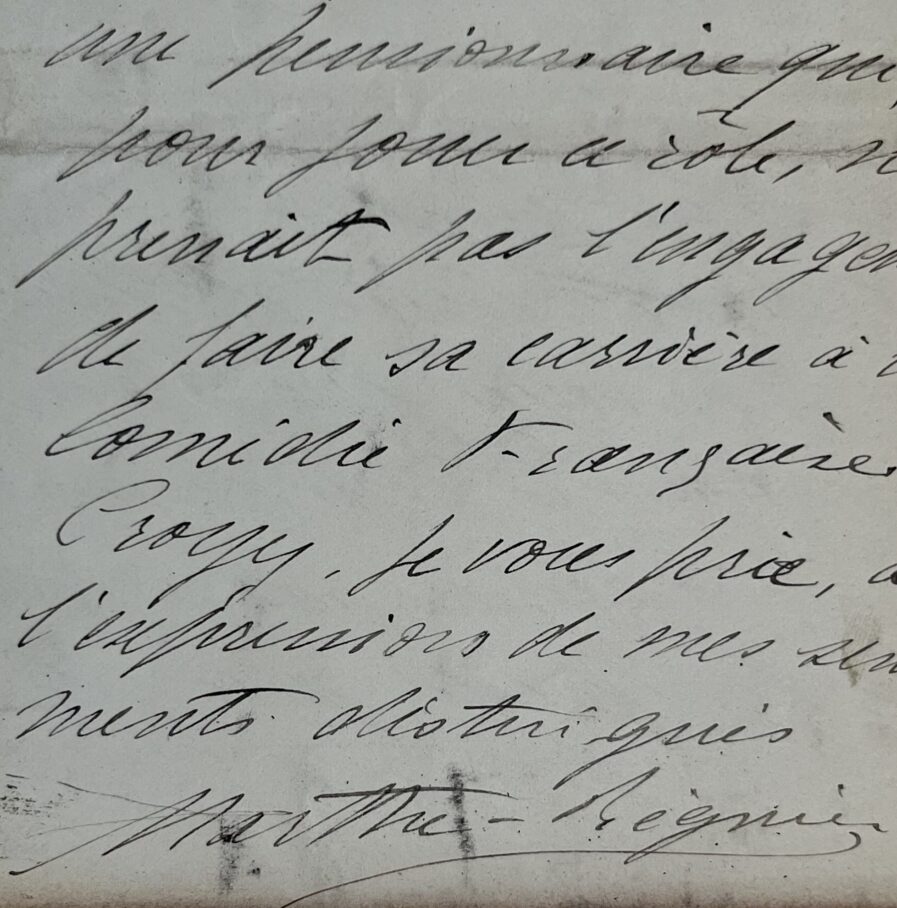 une pensionnaire qui,
pour jouer ce rôle, n
prenait pas l'engagem
de faire sa carrière à
Comédie Française.
Croyez, je vous prie, à
l'expression de mes sen
ments distingués
Marthe-Régnier